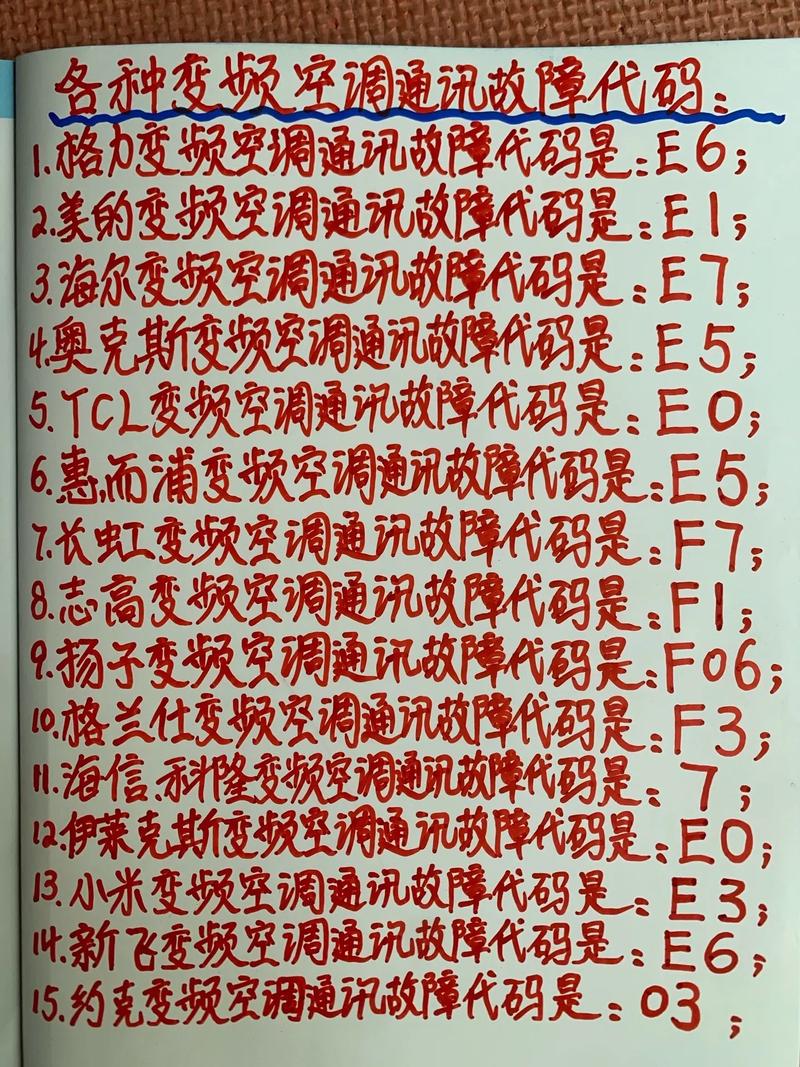 各种变频空调通讯故障代码：
1.格力变频空调通讯故障代码是：E6；
2.美的变频空调通讯故障代码是：E1；
3.海尔变频空调通讯故障代码是：E7；
4.奥克斯变频空调通讯故障代码是：E5；
5.TCL变频空调通讯故障代码是：E0；
6.惠而浦变频空调通讯故障代码是：E5；
7.长虹变频空调通讯故障代码是：F7；
8.志高变频空调通讯故障代码是：F1；
9.扬子变频空调通讯故障代码是：F06；
10.格兰仕变频空调通讯故障代码是：F3；
11.海信、科隆变频空调通讯故障代码是：7；
12.伊莱克斯变频空调通讯故障代码是：E0；
13.小米变频空调通讯故障代码是：E3；
14.新飞变频空调通讯故障代码是：E6；
15.约克变频空调通讯故障代码是：03；